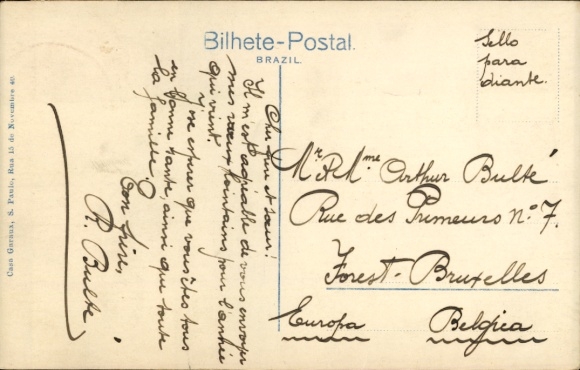 Bilhete-Postal.
BRAZIL.
Sello
para
diante.
Cher frère et sœur!
Il m'est agréable de vous envoyer
mes vœux lointains pour l'année
qui vient.
J'ose espérer que vous êtes tous
en bonne santé, ainsi que toute
la famille.
Ton frère,
R. Bulté
Mr & Mme Arthur Bulté
Rue des Primeurs No 7.
Forest-Bruxelles
Europa Belgica
Casa Garaux, S. Paulo, Rua 15 de Novembro 40.